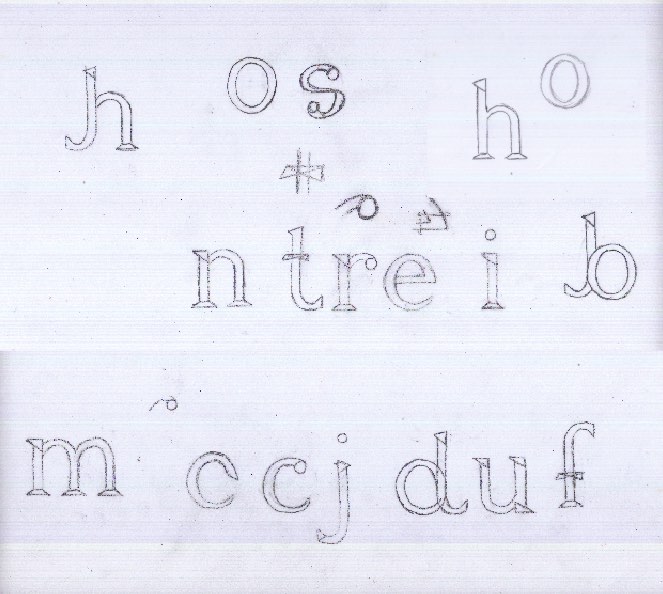 h o s h o
n t r e i b
m c c j d u f